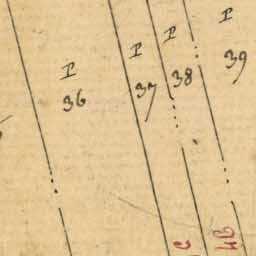 P
36
P
37
P
38
P
39
C
4B